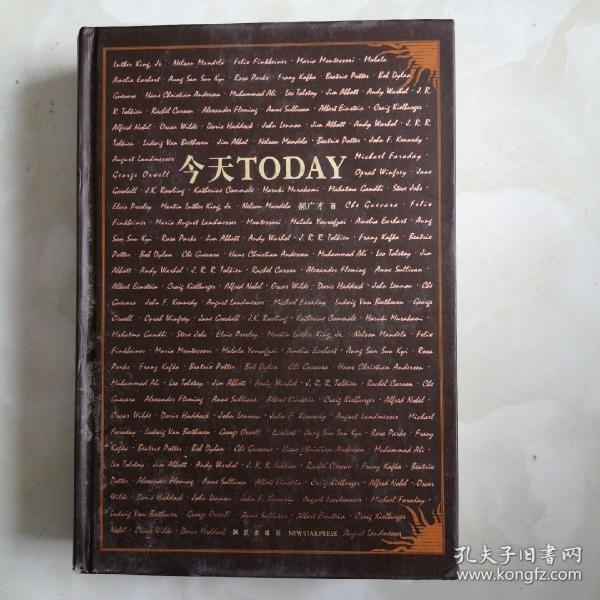 Luther King, Jr. · Nelson Mandela · Felix Finkbeiner · Maria Montessori · Malala
Amelia Earhart · Aung San Suu Kyi · Rosa Parks · Franz Kafka · Beatrix Potter · Bob Dylan
Guevara · Hans Christian Andersen · Muhammad Ali · Leo Tolstoy · Jim Abbott · Andy Warhol · J. R.
R. Tolkien · Rachel Carson · Alexander Fleming · Anne Sullivan · Albert Einstein · Craig Kielburger
Alfred Nobel · Oscar Wilde · Doris Haddock · John Lennon · Jim Abbott · Andy Warhol · J. R. R.
Tolkien · Ludwig Van Beethoven · Jim Abbot · Nelson Mandela · Beatrix Potter · John F. Kennedy
August Landmesser
George Orwell
今天TODAY
Michael Faraday
Oprah Winfrey · Jane
Goodall · J.K. Rowling · Katherine Commale · Haruki Murakami · Mahatma Gandhi · Steve Jobs
Elvis Presley · Martin Luther King, Jr. · Nelson Mandela
郝广才 著
Che Guevara · Felix
Finkbeiner · Maria August Landmesser · Montessori · Malala Yousafzai · Amelia Earhart · Aung
San Suu Kyi · Rosa Parks · Jim Abbott · Andy Warhol · J. R. R. Tolkien · Franz Kafka · Beatrix
Potter · Bob Dylan · Che Guevara · Hans Christian Andersen · Muhammad Ali · Leo Tolstoy · Jim
Abbott · Andy Warhol · J. R. R. Tolkien · Rachel Carson · Alexander Fleming · Anne Sullivan
Albert Einstein · Craig Kielburger · Alfred Nobel · Oscar Wilde · Doris Haddock · John Lennon · Che
Guevara · John F. Kennedy · August Landmesser · Michael Faraday · Ludwig Van Beethoven · George
Orwell · Oprah Winfrey · Jane Goodall · J.K. Rowling · Katherine Commale · Haruki Murakami
Mahatma Gandhi · Steve Jobs · Elvis Presley · Martin Luther King, Jr. · Nelson Mandela · Felix
Finkbeiner · Maria Montessori · Malala Yousafzai · Amelia Earhart · Aung San Suu Kyi · Rosa
Parks · Franz Kafka · Beatrix Potter · Bob Dylan · Che Guevara · Hans Christian Andersen
Muhammad Ali · Leo Tolstoy · Jim Abbott · Andy Warhol · J. R. R. Tolkien · Rachel Carson · Che
Guevara · Alexander Fleming · Anne Sullivan · Albert Einstein · Craig Kielburger · Alfred Nobel
Oscar Wilde · Doris Haddock · John Lennon · John F. Kennedy · August Landmesser · Michael
Faraday · Ludwig Van Beethoven · George Orwell · Aung San Suu Kyi · Rosa Parks · Franz
Kafka · Beatrix Potter · Bob Dylan · Che Guevara · Hans Christian Andersen · Muhammad Ali
Leo Tolstoy · Jim Abbott · Andy Warhol · J. R. R. Tolkien · Rachel Carson · Franz Kafka · Beatrix
Potter · Alexander Fleming · Anne Sullivan · Albert Einstein · Craig Kielburger · Alfred Nobel · Oscar
Wilde · Doris Haddock · John Lennon · John F. Kennedy · August Landmesser · Michael Faraday
Ludwig Van Beethoven · George Orwell · Anne Sullivan · Albert Einstein · Craig Kielburger
Nobel · Oscar Wilde · Doris Haddock
新星出版社 NEW STAR PRESS
August Landmesser
孔夫子旧书网
www.kongfz.com